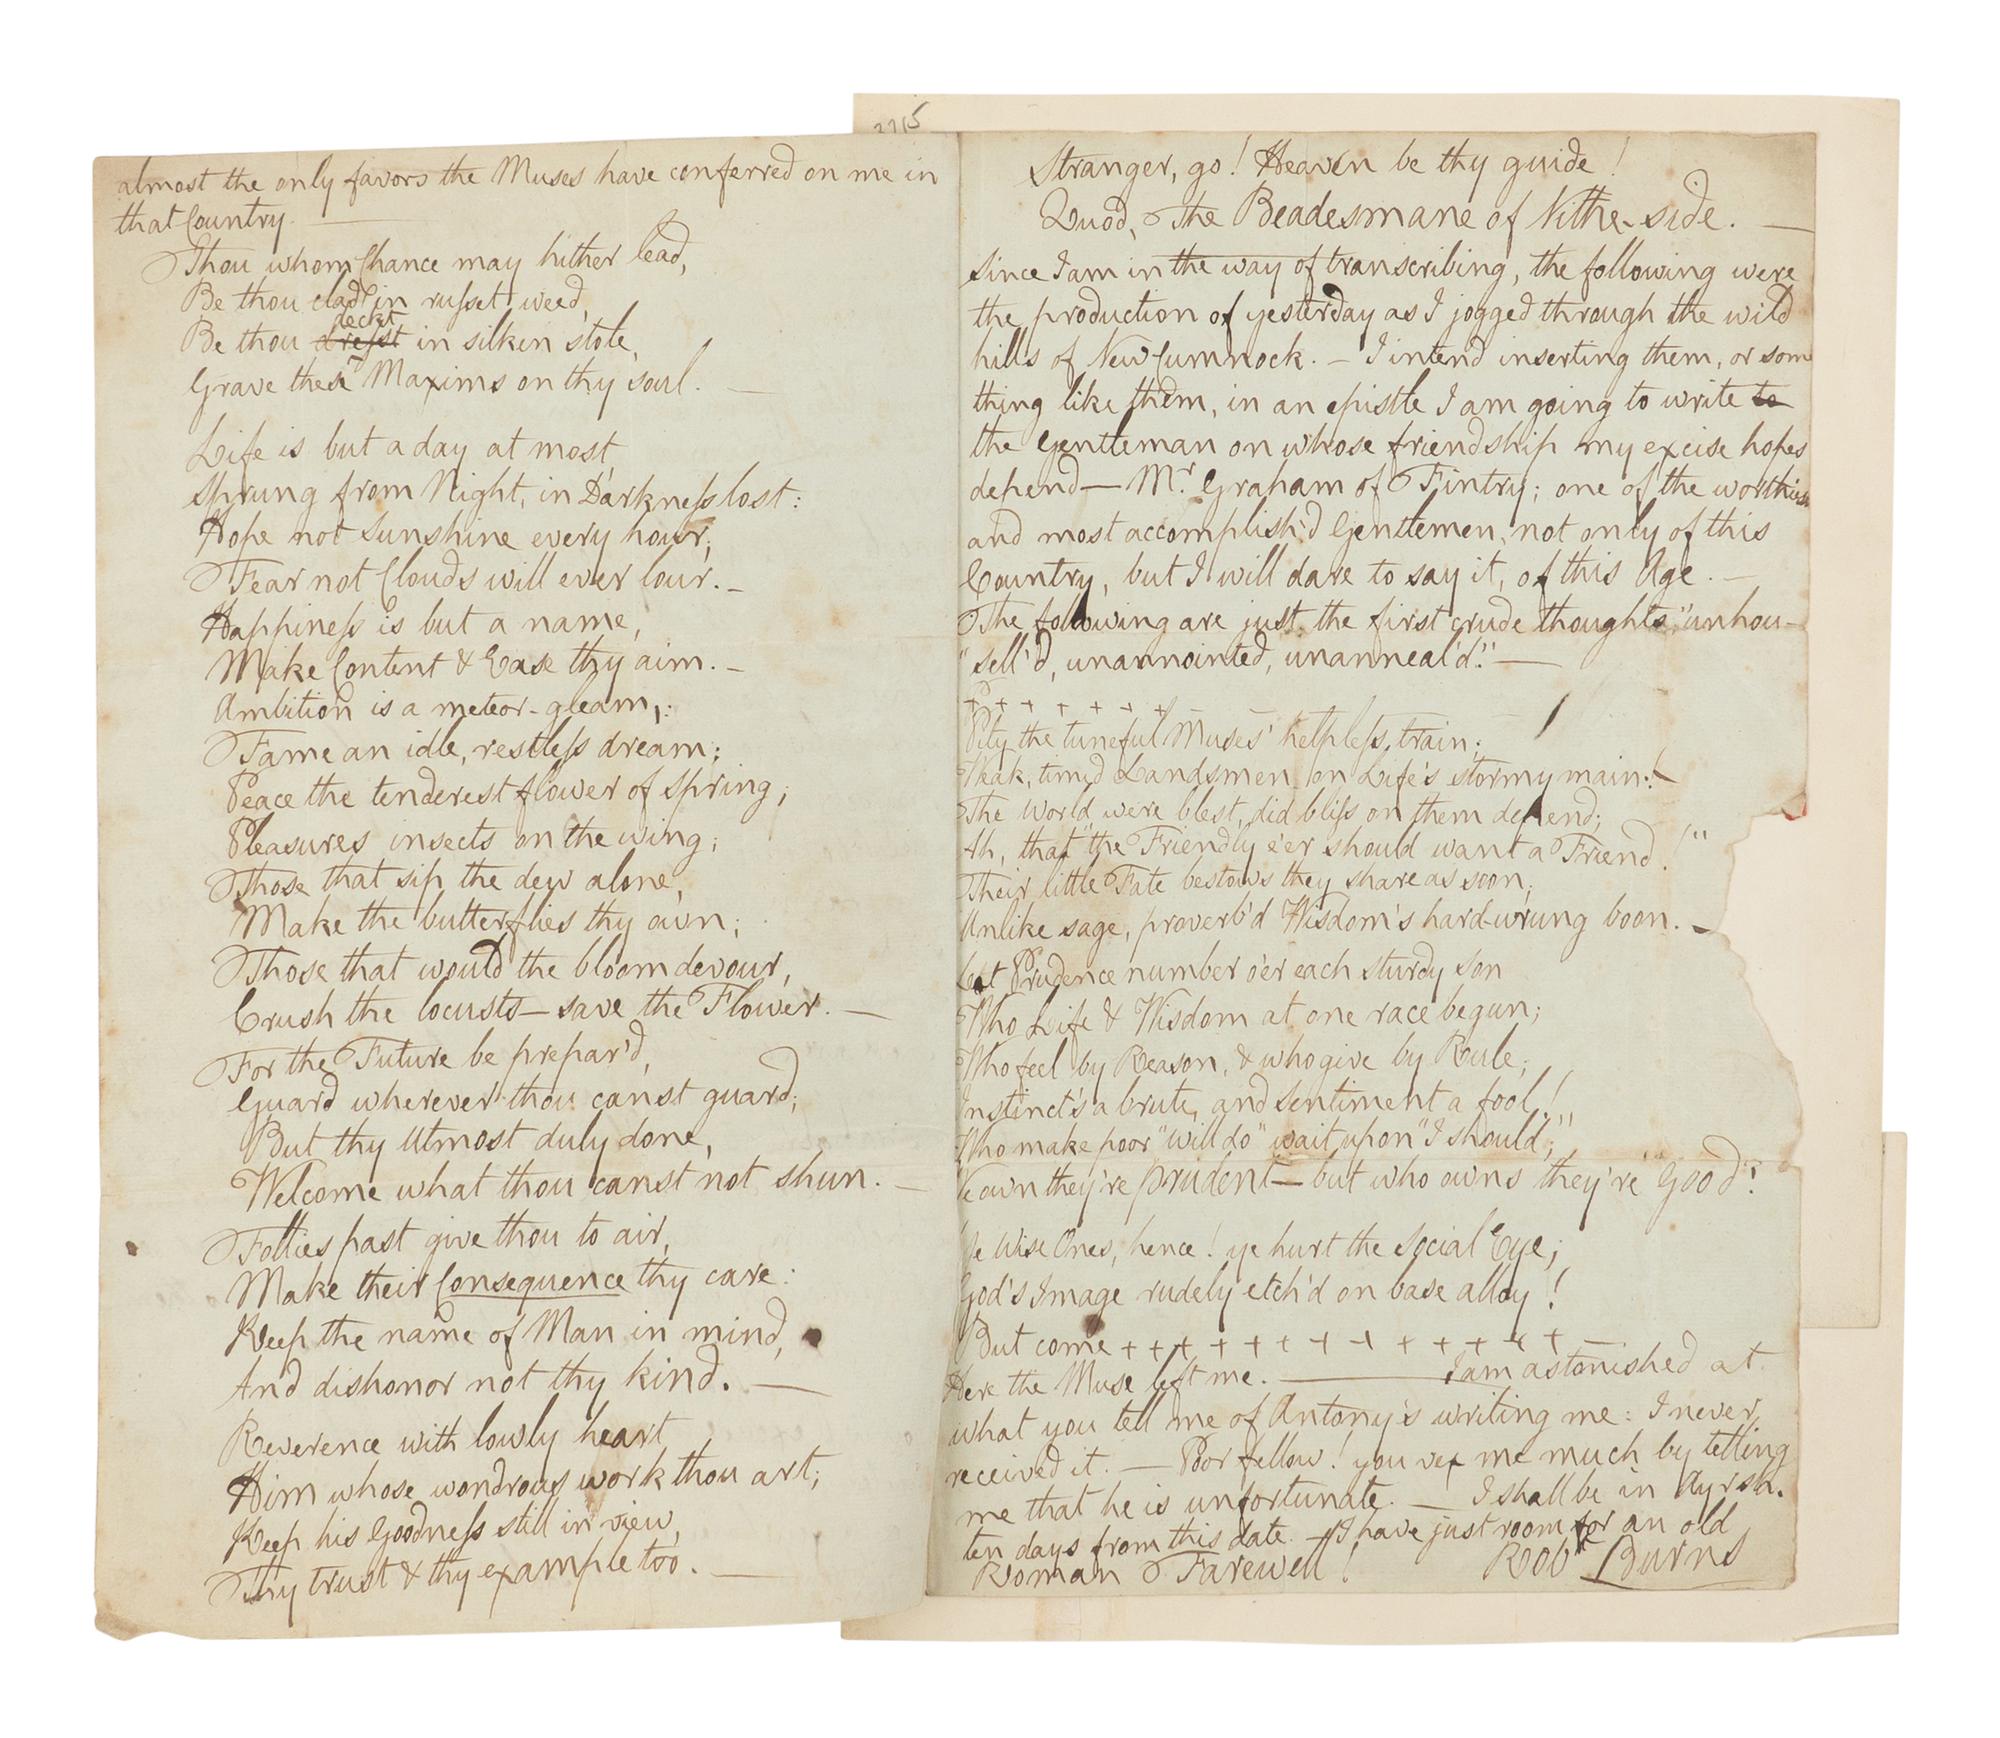 almost the only favors the Muses have conferred on me in
that Country. —
Thou whom Chance may hither lead,
Be thou clad in russet weed,
deckt
Be thou dresst in silken stole,
Grave these Maxims on thy soul. —
Life is but a day at most,
Sprung from Night, in Darkness lost:
Hope not Sunshine every hour,
Fear not Clouds will ever lour. —
Happiness is but a name,
Make Content & Ease thy aim. —
Ambition is a meteor-gleam,
Fame an idle, restless dream;
Peace the tenderest flower of Spring;
Pleasures insects on the wing;
Those that sip the dew alone,
Make the butterflies thy own;
Those that would the bloom devour,
Crush the locusts — save the Flower. —
For the Future be prepar'd,
Guard wherever thou canst guard;
But thy Utmost duly done,
Welcome what thou canst not shun. —
Follies past give thou to air,
Make their Consequence thy care:
Keep the name of Man in mind,
And dishonor not thy kind. —
Reverence with lowly heart
Him whose wondrous work thou art;
Keep his Goodness still in view,
Thy trust & thy example too. —
Stranger, go! Heaven be thy guide!
Quod, The Beadesmane of Nithe-side. —
Since I am in the way of transcribing, the following were
the production of yesterday as I jogged through the wild
hills of New Cumnock. — I intend inserting them, or som
thing like them, in an epistle I am going to write to
the Gentleman on whose friendship my excise hopes
depend — Mr. Graham of Fintry; one of the worthiest
and most accomplish'd Gentlemen, not only of this
Country, but I will dare to say it, of this Age. —
The following are just the first crude thoughts "unhou-
"sell'd, unannointed, unanneal'd." —
+ + + + + + +
Pity the tuneful Muses' helpless train;
Weak, timid Landsmen on Life's stormy main!
The World were blest, did bliss on them depend;
Ah, that "the Friendly e'er should want a Friend!"
Their little Fate bestows they share as soon;
Unlike sage, proverb'd Wisdom's hard-wrung boon. —
Let Prudence number o'er each sturdy son
Who Life & Wisdom at one race begun;
Who feel by Reason, & who give by Rule;
Instinct's a brute, and Sentiment a fool!
Who make poor "will do" wait upon "I should;"
We own they're prudent — but who owns they're good?
Ye Wise Ones, hence! ye hurt the Social Eye;
God's Image rudely etch'd on base alloy!
But come + + + + + + + + + + + + + + —
Here the Muse left me. — I am astonished at
what you tell me of Antony's writing me: I never
received it. — Poor fellow! you vex me much by telling
me that he is unfortunate. — I shall be in Ayrsh.
ten days from this date. — I have just room for an old
Roman Farewell! Robt Burns